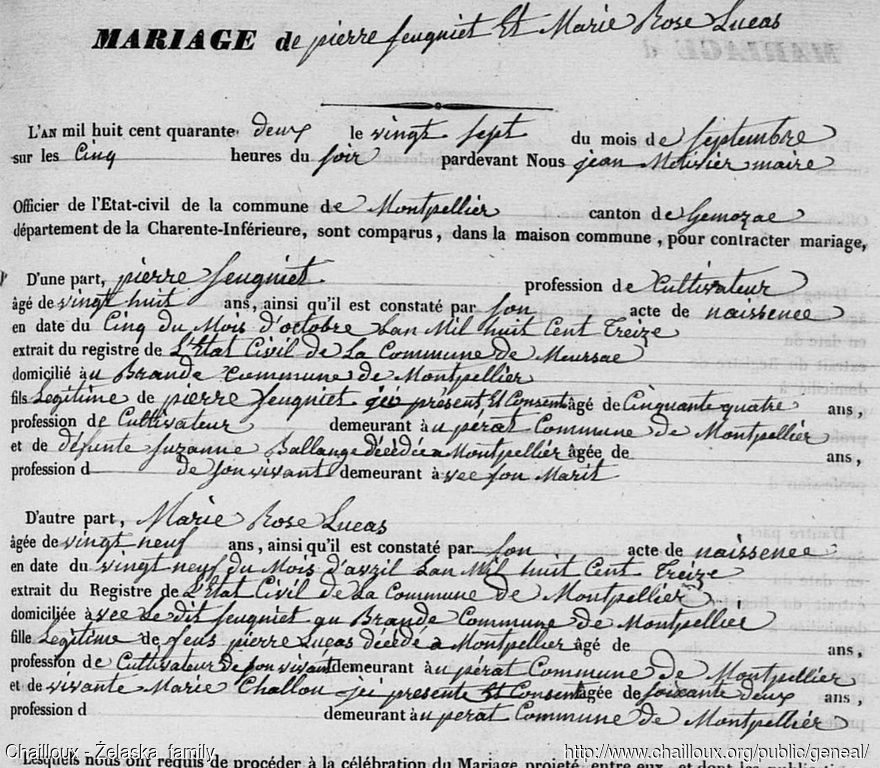 MARIAGE de pierre feugniet Et Marie Rose Lucas
L'AN mil huit cent quarante deux le vingt sept du mois de Septembre
sur les Cinq heures du soir pardevant Nous jean Métivier maire
Officier de l'Etat-civil de la commune de Montpellier canton de Gemozac
département de la Charente-Inférieure, sont comparus, dans la maison commune, pour contracter mariage,
D'une part, pierre feugniet profession de Cultivateur
âgé de vingt huit ans, ainsi qu'il est constaté par son acte de naissence
en date du Cinq du Mois d'octobre Lan Mil huit Cent Treize
extrait du registre de L'Etat Civil de La Commune de Meursac
domicilié àu Brande Commune de Montpellier
fils Legitime de pierre feugniet jci présent Et Consent âgé de Cinquante quatre ans,
profession de Cultivateur demeurant àu pérat Commune de Montpellier
et de défunte Suzanne Ballange décédée a Montpellier âgée de ans,
profession d de son vivant demeurant àvec son Marit
D'autre part, Marie Rose Lucas
âgée de vingt neuf ans, ainsi qu'il est constaté par son acte de naissence
en date du vingt neuf du Mois d'avril Lan Mil huit Cent Treize
extrait du Registre de L'Etat Civil de La Commune de Montpellier
domiciliée àvec Le dit feugniet au Brande Commune de Montpellier
fille Legitime de feus pierre Lucas décédé a Montpellier âgé de ans,
profession de Cultivateur de son vivant demeurant àu pérat Commune de Montpellier
et de vivante Marie Challou jci presente Et Consent âgée de soixante deux ans,
profession d demeurant àu perat Commune de Montpellier
Lesquels nous ont requis de procéder à la célébration du Mariage projeté entre eux, et dont les
Chailloux - Żelaska family http://www.chailloux.org/public/geneal/